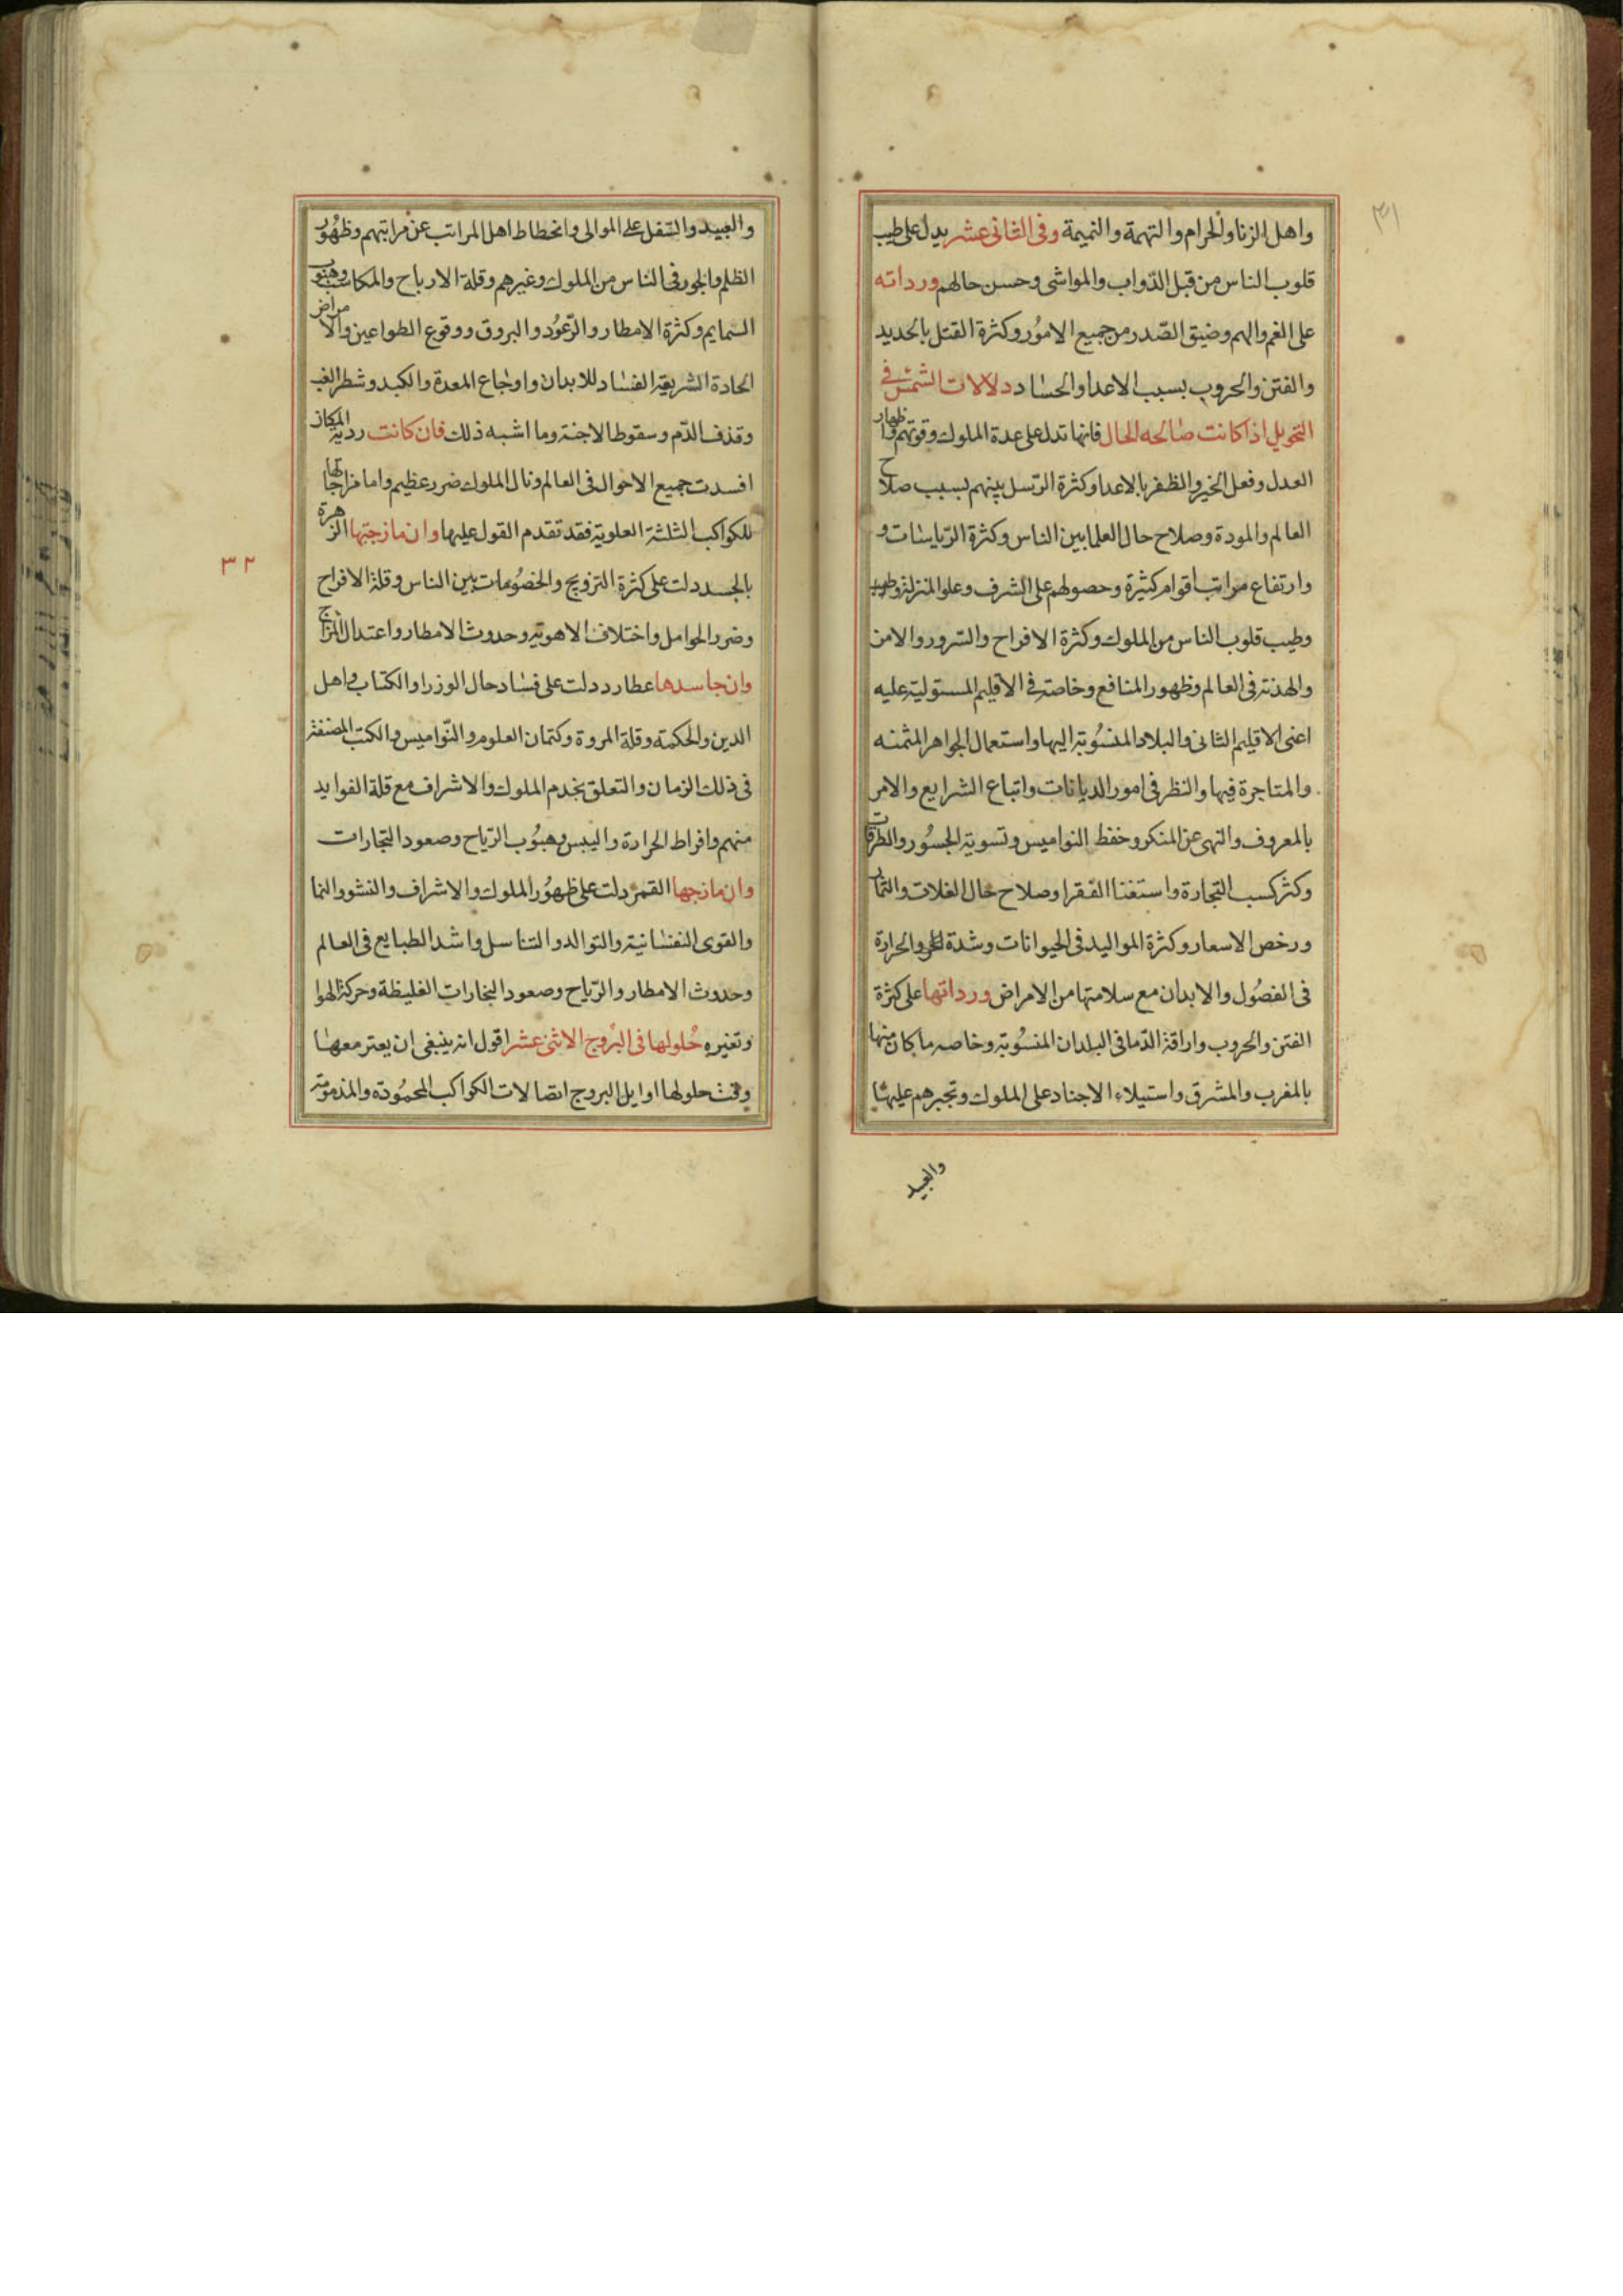 ٣١
واهل الزنا والحرام والتهمة والنميمة وفى الثانى عشر يدل على طيب
قلوب الناس من قبل الدّواب والمواشى وحسن حالهم ورداته
على الغم والهم وضيق الصّدر من جميع الامُور وكثرة القتل بالحديد
والفتن والحروب بسبب الاعدا والحساد دلالات الشمس فى
التحويل اذا كانت صالحه الحال فانها تدل على عدة الملوك وقوتهم واظهار
العدل وفعل الخير والظفر بالاعدا وكثرة الرّسل بينهم بسبب صلاح
العالم والمودة وصلاح حال العلما بين الناس وكثرة الرّياسات و
وارتفاع مراتب اقوام كثيرة وحصولهم على الشرف وعلو المنزلة
وطيب قلوب الناس من الملوك وكثرة الافراح والسّرور والامن
والهدنة فى العالم وظهور المنافع وخاصة فى الاقليم المستولية عليه
اعنى الاقليم الثانى والبلاد المنسُوبة اليها واستعمال الجواهر المثمنه
والمتاجرة فيها والنظر فى امور الديانات واتباع الشرايع والامر
بالمعروف والنهى عن المنكر وحفظ النواميس وتسوية الجسُور والطرقات
وكثر كسب التجارة واستغنا الفقرا وصلاح حال الغلات والثمار
ورخص الاسعار وكثرة المواليد فى الحيوانات وشدة الحر والحرارة
فى الفصُول والابدان مع سلامتها من الامراض ورداتها على كثرة
الفتن والحروب واراقة الدّما فى البلدان المنسُوبة وخاصه ما كان منها
بالمغرب والمشرق واستيلاء الاجناد على الملوك وتجبرهم عليها
والعبيد
والعبيد والسّفل على الموالى وانحطاط اهل المراتب عن مراتبهم وظهُور
الظلم والجور فى الناس من الملوك وغيرهم وقلة الارباح والمكاسب وهبوب
السمايم وكثرة الامطار والرّعُود والبروق ووقوع الطواعين والامراض
الحادة الشريعة الفساد للابدان واوجاع المعدة والكبد وشطر الغب
وقذف الدّم وسقوط الاجنة وما اشبه ذلك فان كانت ردية المكان
افسدت جميع الاحوال فى العالم ونال الملوك ضرر عظيم واما مزاجها
للكواكب الثلثة العلوية فقد تقدم القول عليها وان مازجتها الزهرة
بالجسد دلت على كثرة التزويج والخصُومات بين الناس وقلة الافراح
وضرر الحوامل واختلاف الاهوية وحدوث الامطار واعتدال المزاج
وان جاسدها عطارد دلت على فساد حال الوزرا والكتاب واهل
الدين والحكمة وقلة المروة وكتمان العلوم والنّواميس والكتب المصنفة
فى ذلك الزمان والتعلق بخدم الملوك والاشراف مع قلة الفوايد
منهم وافراط الحرارة واليبس وهبُوب الرّياح وصعود التجارات
وان مازجها القمر دلت على ظهوُر الملوك والاشراف والنشو والنما
والقوى النفسانية والتوالد والتناسل واشد الطبايع فى العالم
وحدوث الامطار والرّياح وصعود البخارات الغليظة وحركة الهوا
وتغيره حُلولها فى البُروج الاثنى عشر اقول انه ينبغى ان يعتبر معها
وقت حلولها اوايل البروج اتصالات الكواكب المحمُودة والمذمومة
٣٢